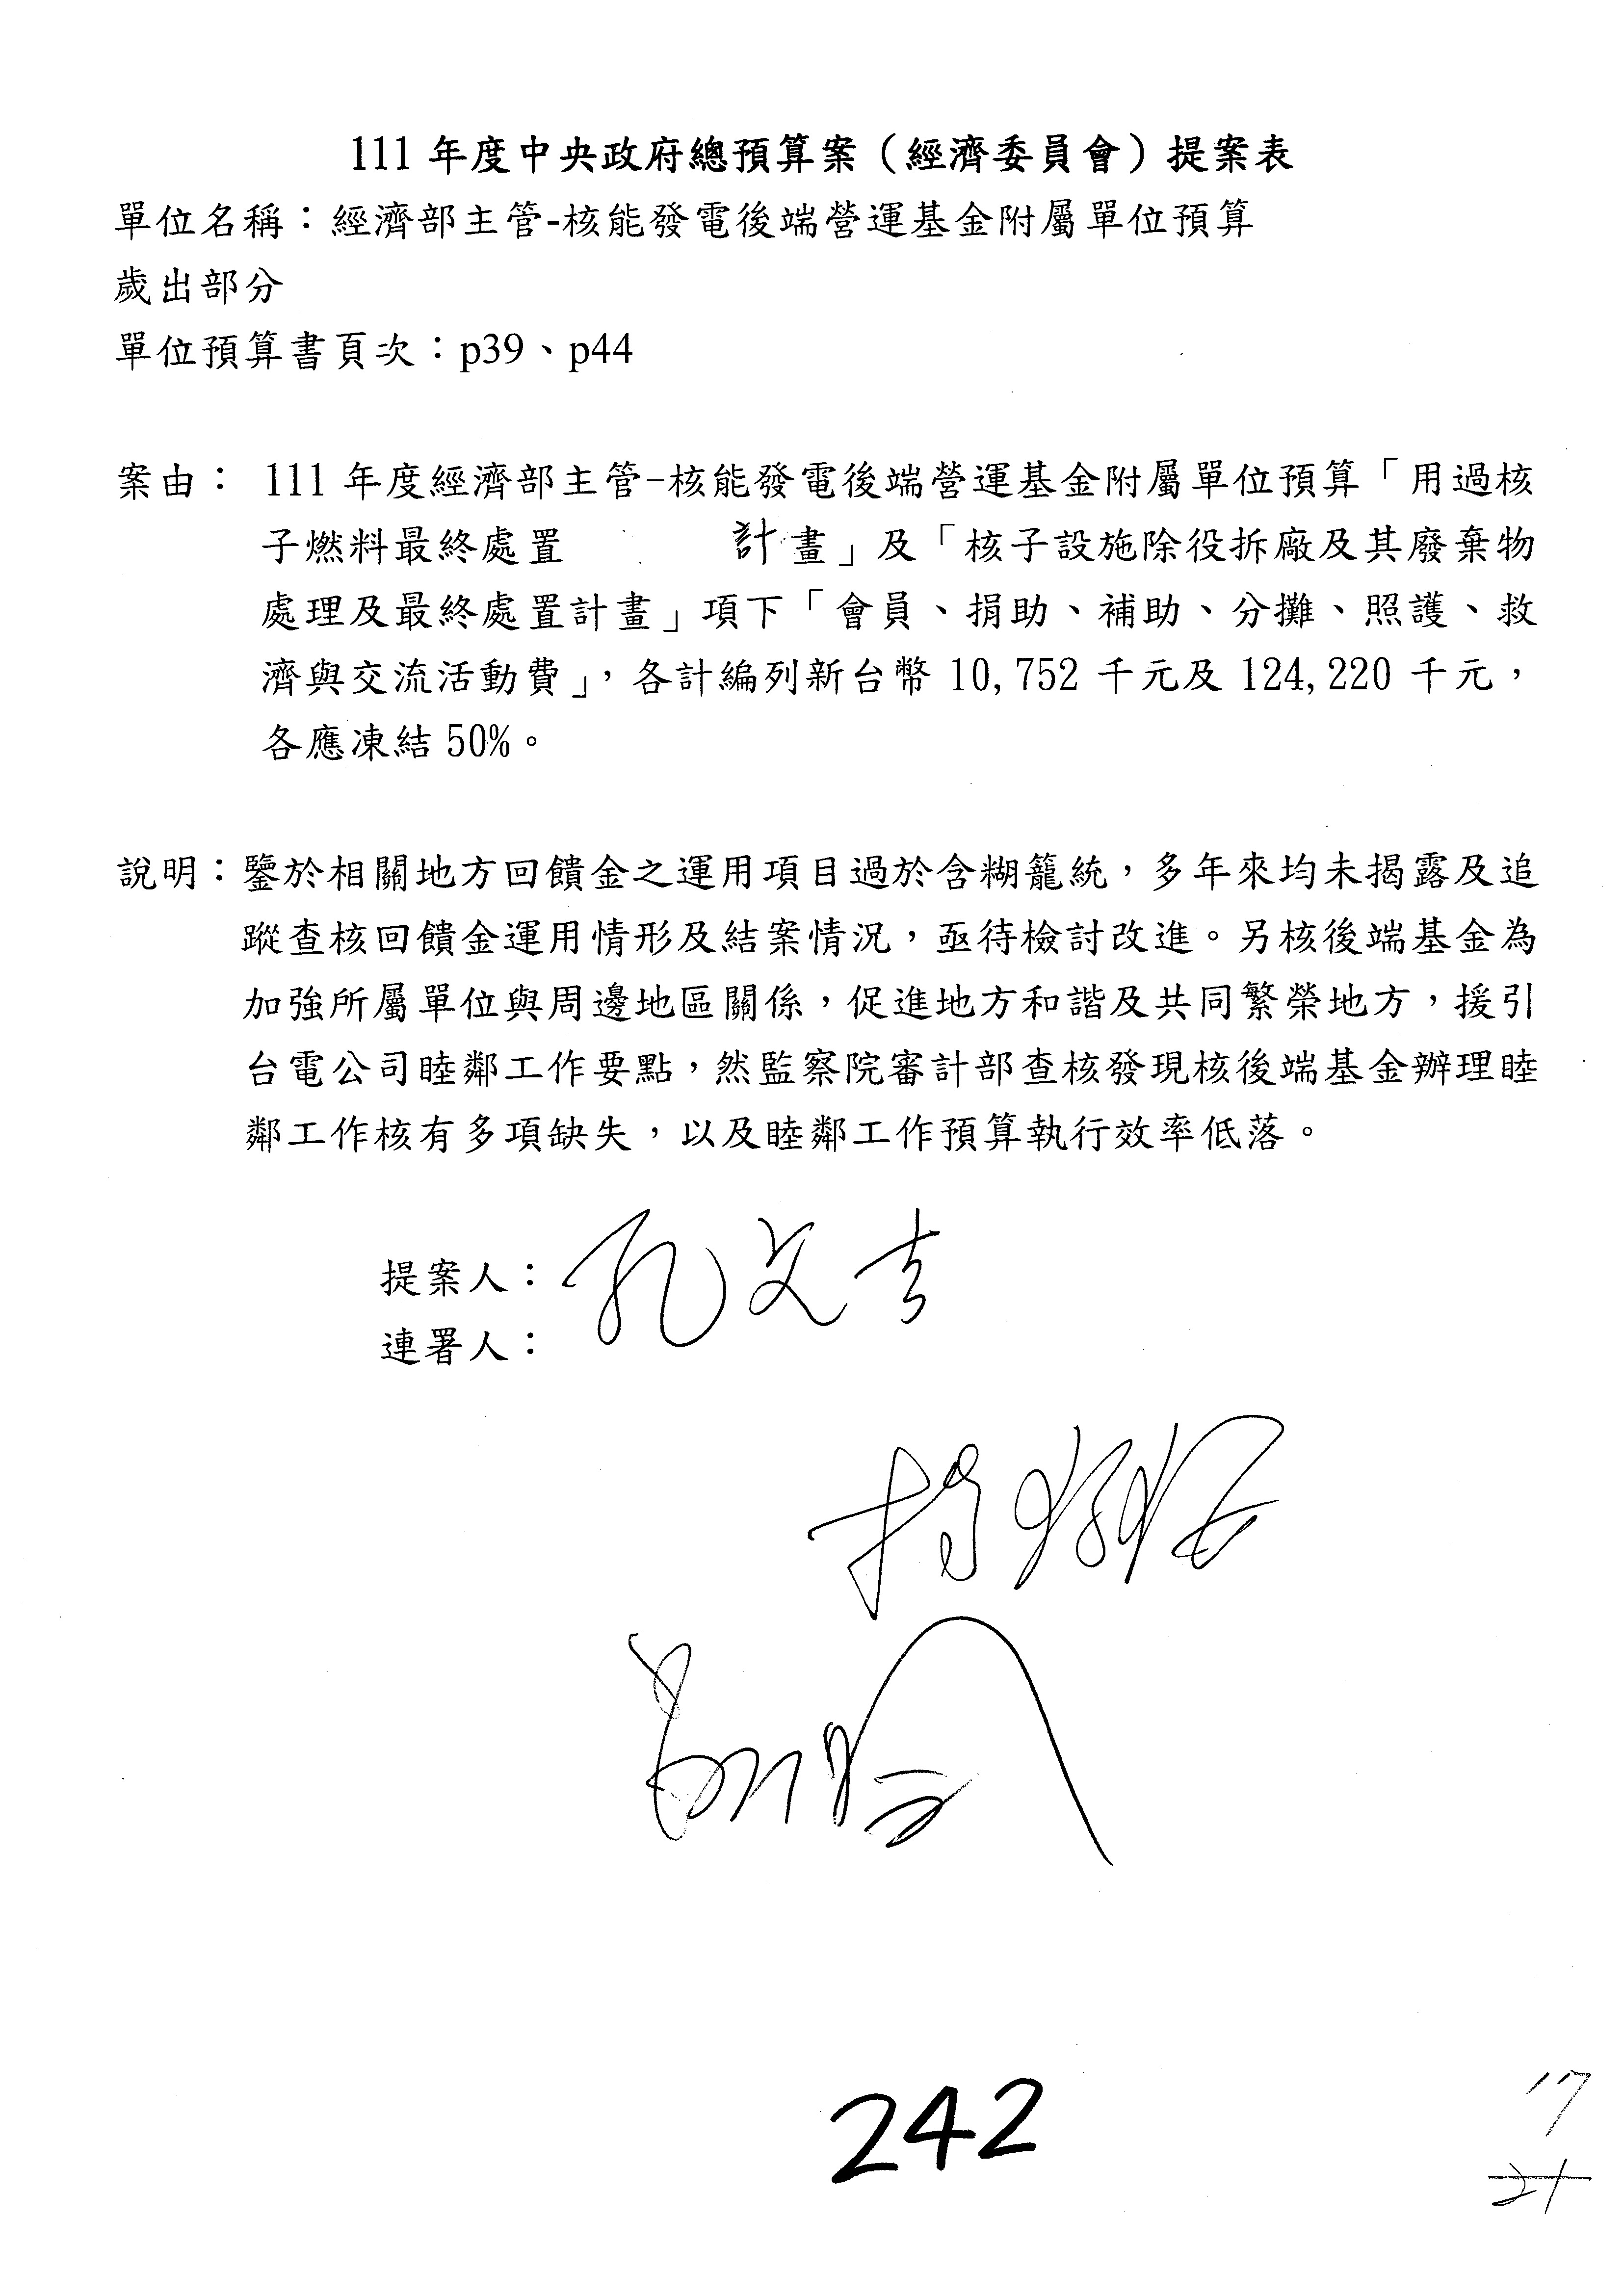 111 年度中央政府總預算案（經濟委員會）提案表
單位名稱：經濟部主管-核能發電後端營運基金附屬單位預算
歲出部分
單位預算書頁次：p39、p44
案由： 111 年度經濟部主管-核能發電後端營運基金附屬單位預算「用過核
子燃料最終處置 計畫」及「核子設施除役拆廠及其廢棄物
處理及最終處置計畫」項下「會員、捐助、補助、分攤、照護、救
濟與交流活動費」，各計編列新台幣 10,752 千元及 124,220 千元，
各應凍結 50%。
說明：鑒於相關地方回饋金之運用項目過於含糊籠統，多年來均未揭露及追
蹤查核回饋金運用情形及結案情況，亟待檢討改進。另核後端基金為
加強所屬單位與周邊地區關係，促進地方和諧及共同繁榮地方，援引
台電公司睦鄰工作要點，然監察院審計部查核發現核後端基金辦理睦
鄰工作核有多項缺失，以及睦鄰工作預算執行效率低落。
提案人：孔文吉
連署人：
242
17
21